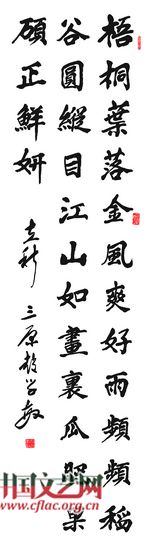 梧桐葉落金風爽好雨頻頻稻
谷圓縱目江山如畫裏瓜甜果
碩正鮮妍
中国文艺网
www.cflac.org.cn